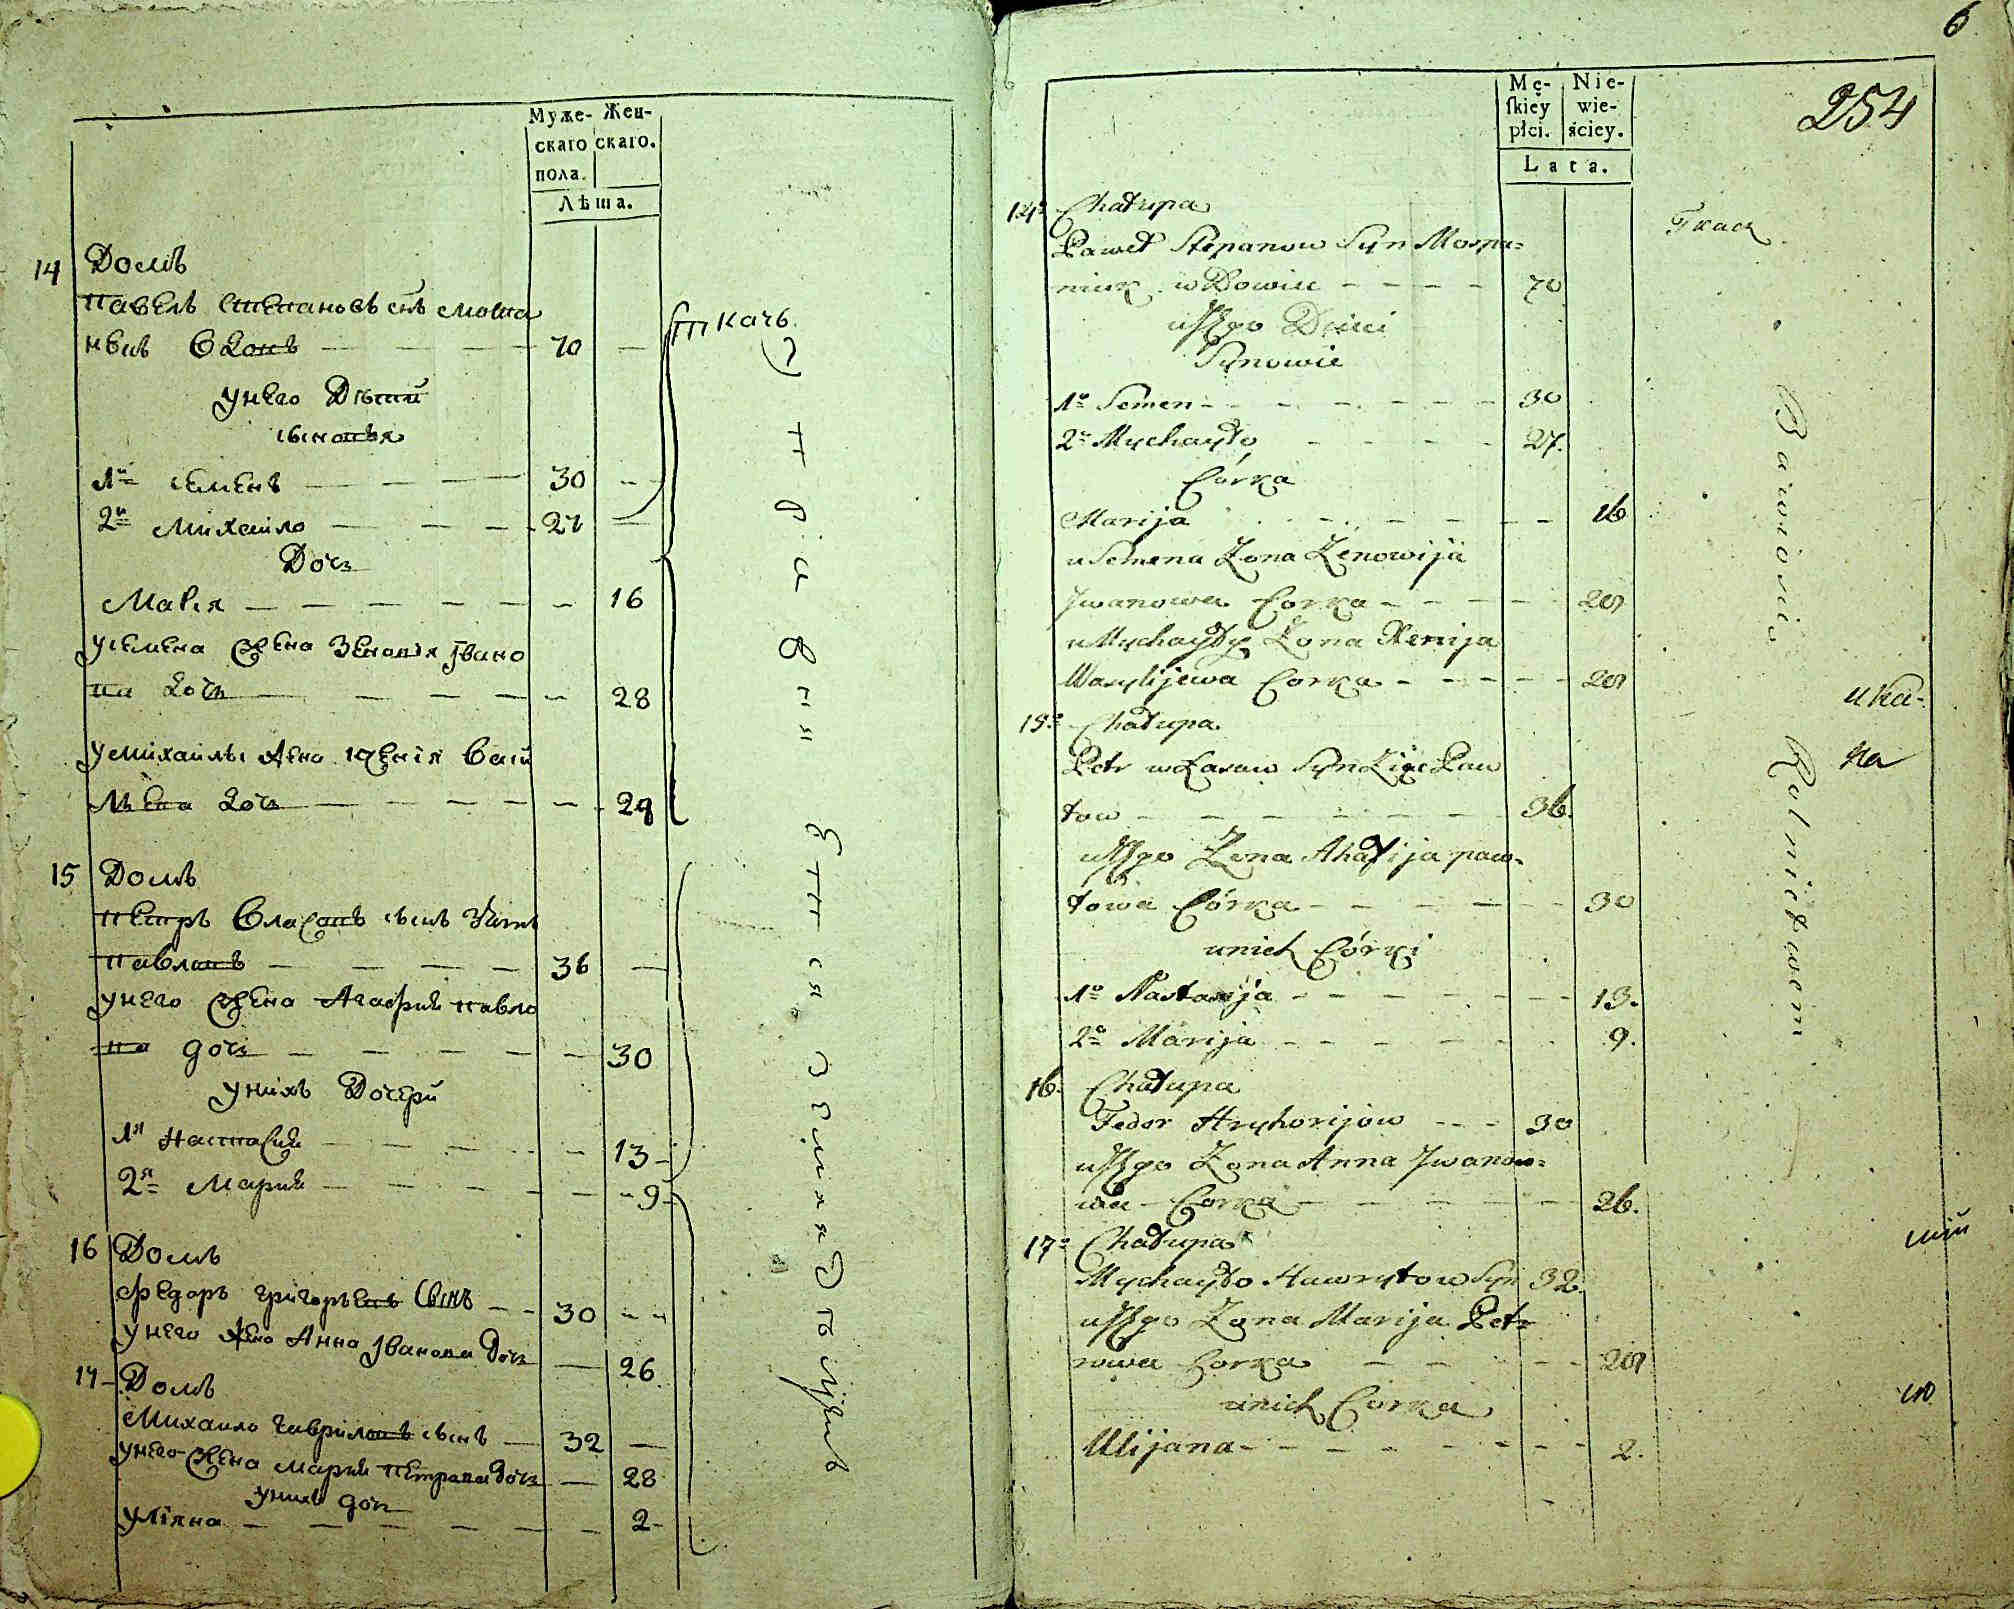 Муже- Жен-
скаго скаго.
пола.
Лѣта.
14 Домъ
павелъ степановъ снъ мошпа
нюкъ вдовъ — — — 70 —
унего Дѣти
сыновья
1й семенъ — — — 30 —
2й Михайло — — — 27 —
Дочь
Марія — — — — — — 16
усемена жена Зеновія Ивано
ва дочь — — — — — 28
умихайлы жена ксенія васи
льева дочь — — — — — 28
15 Домъ
петръ власовъ сынъ Зять
павловъ — — — — 36 —
унего жена Агафия павло
ва дочь — — — — — 30
унихъ Дочери
1я Настасия — — — — 13
2я Мария — — — — — 9
16 Домъ
Федоръ григорьевъ сынъ — 30 —
унего жена Анна Иванова дочь — 26
17 Домъ
Михайло гавриловъ сынъ — 32 —
унего жена мария петрова дочь — 28
унихъ дочь
уліяна — — — — — — 2
ткачь
6
254
Mę- Nie-
skiey wie-
płci. ściey.
Lata.
14o Chałupa
Paweł Stepanow Syn Moszpa-
niuk wdowiec — — — — 70
u Jego Dzieci
Synowie
1o Semen — — — — — 30
2o Mychayło — — — — 27.
Córka
Marija — — — — — 16
u Semena Zona Zenowija
Jwanowa Corka — — — — 28
u Mychayły Zona Xenija
Wasylijewa Corka — — — — 28
15o Chałupa
Petr własow Syn Zięć Paw
łow — — — — — — 36.
u Jego Zona Ahafija paw-
łowa Córka — — — — — 30
unich Córki
1o Nastasija — — — — — 13.
2o Marija — — — — — 9.
16. Chałupa
Fedor Hryhorijow — — — 30
u Jego Zona Anna Jwano-
wa Corka — — — — 26.
17o Chałupa
Mychayło Hawryłow Syn 32.
u Jego Zona Marija Pet-
rowa Corka — — — — 28
unich Corka
Ulijana — — — — — — 2.
Tkacz.
Rolnictwem